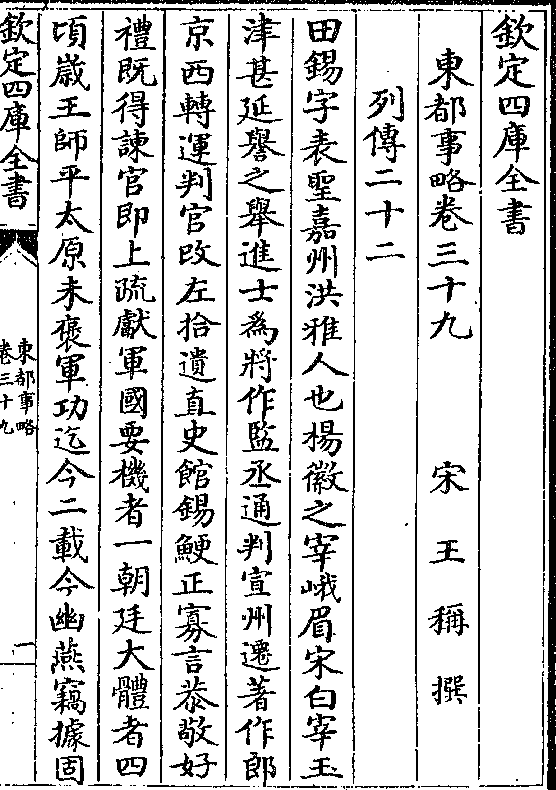 欽定四庫全書
東都事略卷三十九　宋　王　稱　撰
列傳二十二
田錫字表聖嘉州洪雅人也楊徽之宰峨眉宋白宰玉
津甚延譽之舉進士為將作監丞通判宣州遷著作郎
京西轉運判官改左拾遺直史館錫鯁正寡言恭敬好
禮既得諫官即上疏獻軍國要機者一朝廷大體者四
頃歲王師平太原未褒軍功迄今二載今幽燕竊據固
欽定四庫全書
東都事略
卷三十九
一